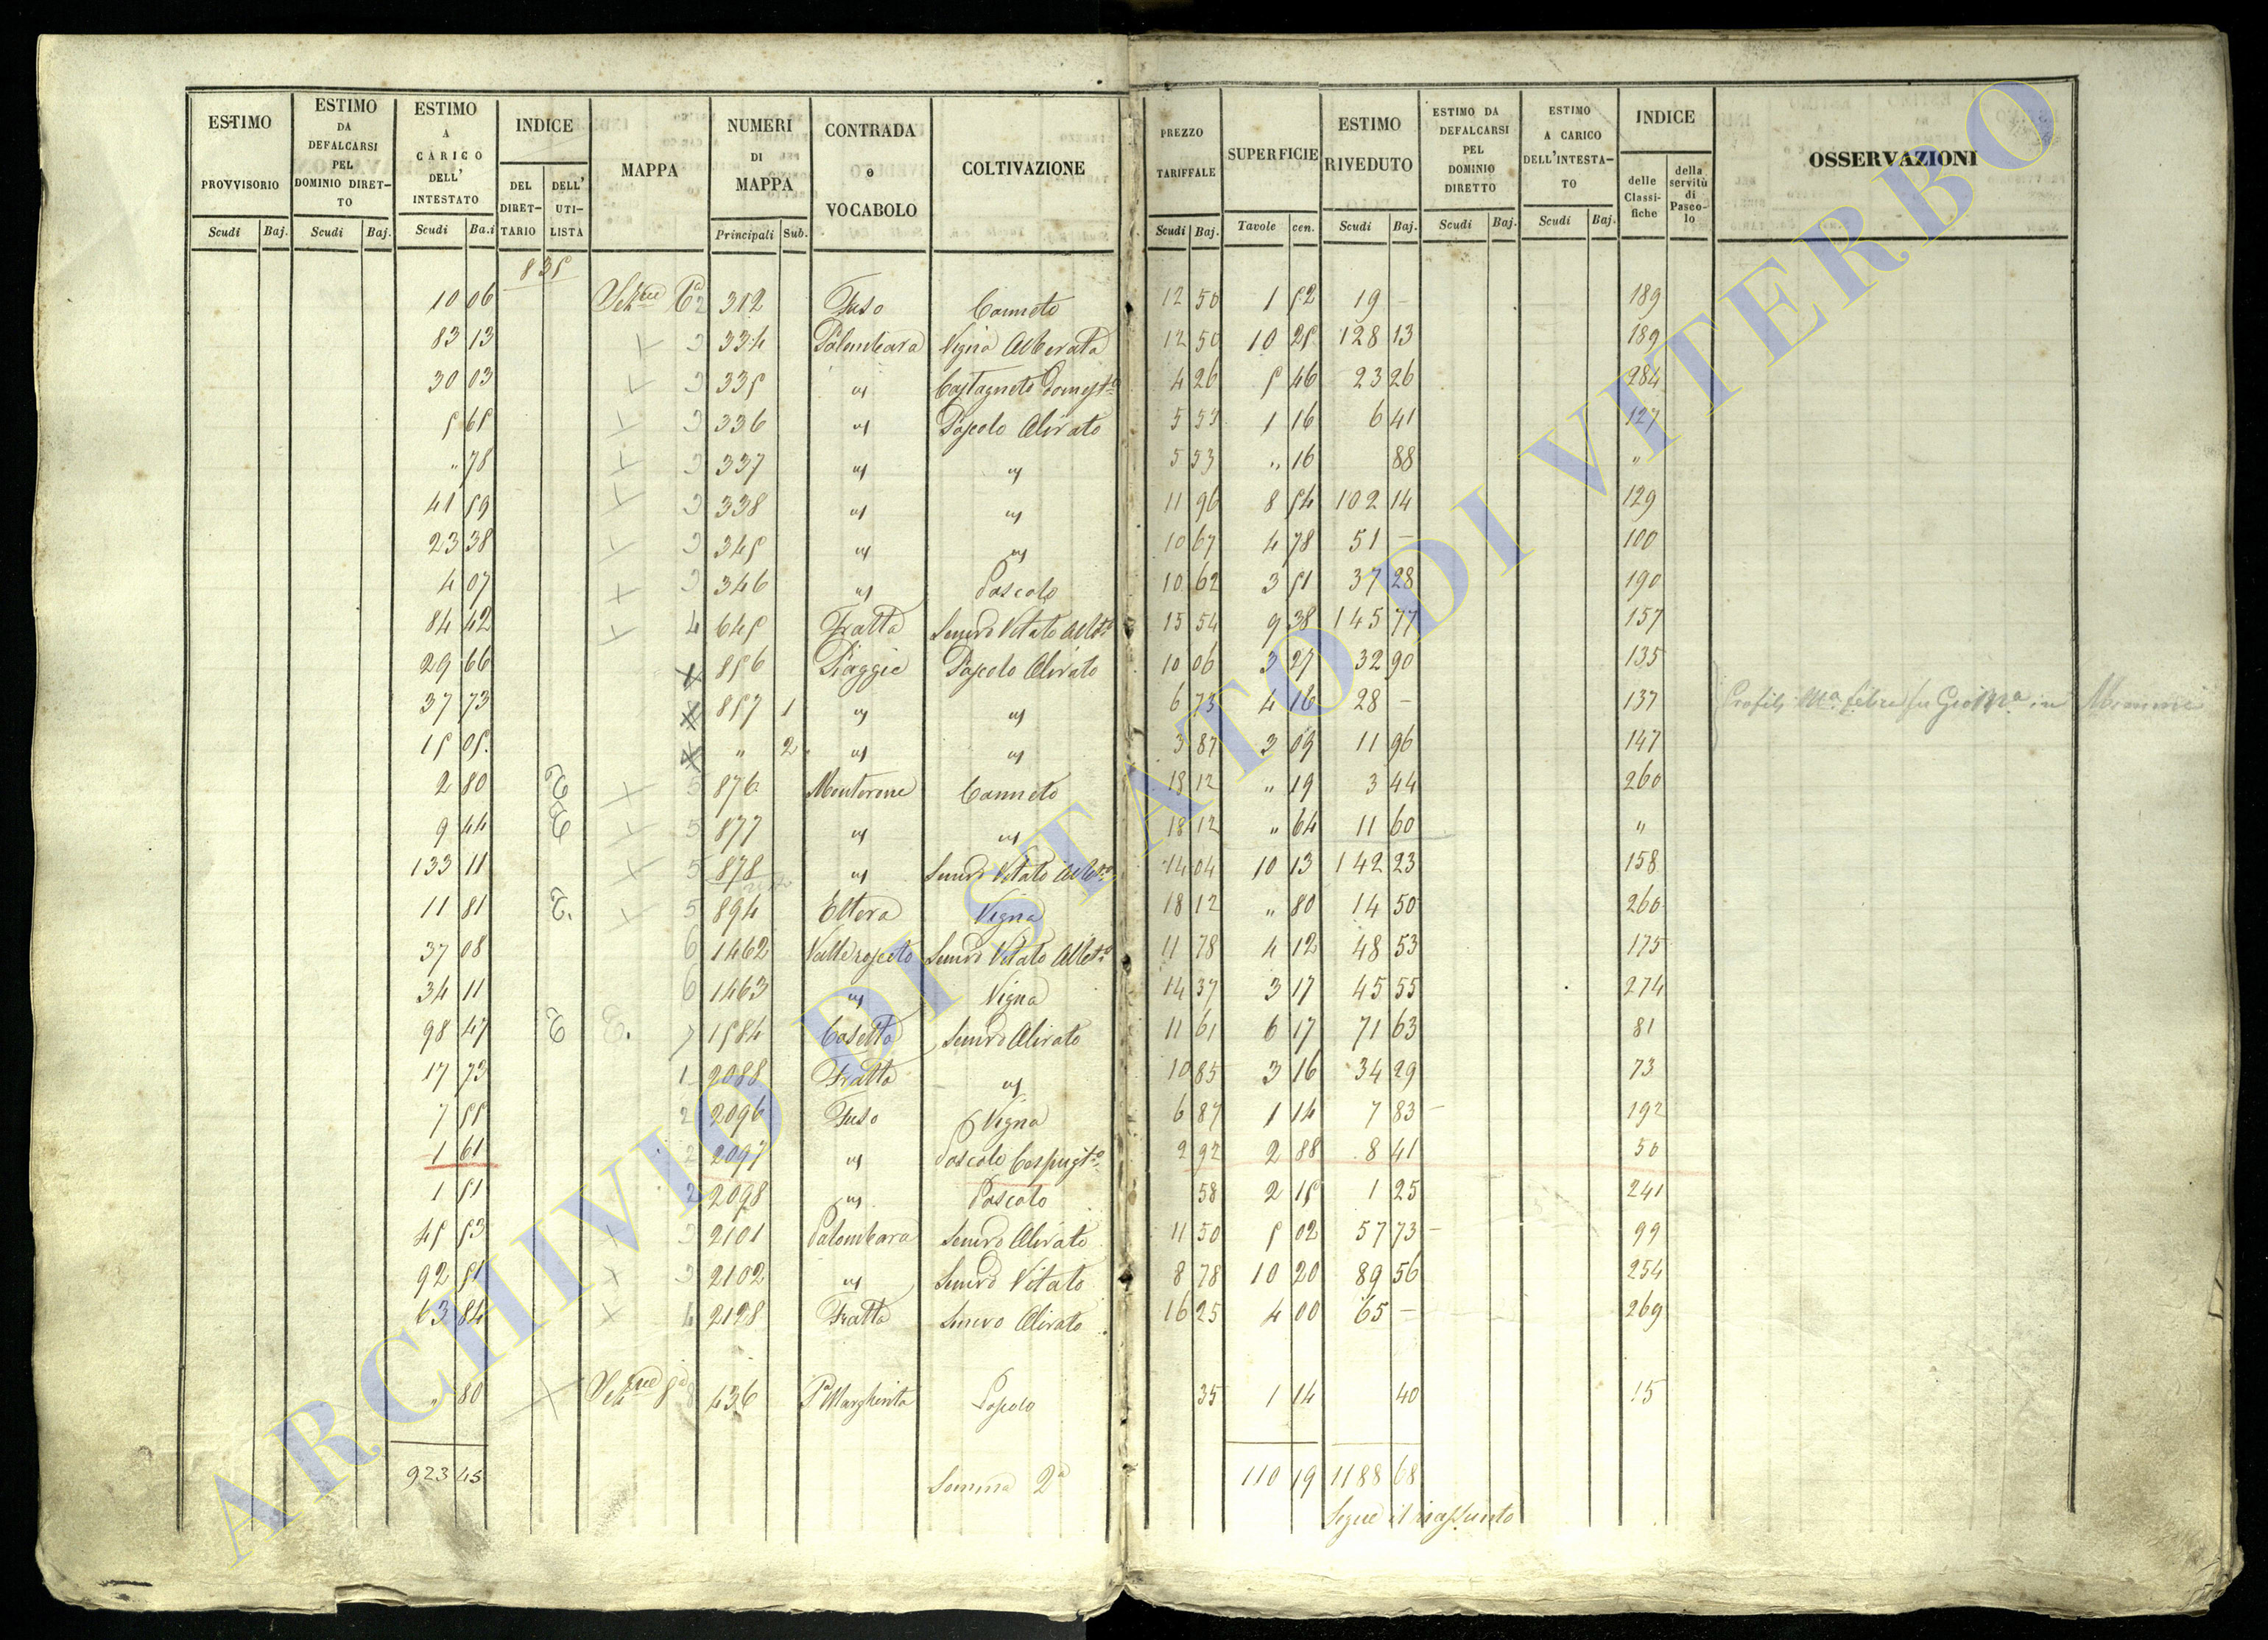 ESTIMO PROVVISORIO Scudi Baj.
ESTIMO DA DEFALCARSI PEL DOMINIO DIRET-TO Scudi Baj.
ESTIMO A CARICO DELL' INTESTATO Scudi Ba.i
INDICE DEL DIRET-TARIO DELL' UTI-LISTA
MAPPA
NUMERI DI MAPPA Principali Sub.
CONTRADA o VOCABOLO
COLTIVAZIONE
PREZZO TARIFFALE Scudi Baj.
SUPERFICIE Tavole cen.
ESTIMO RIVEDUTO Scudi Baj.
ESTIMO DA DEFALCARSI PEL DOMINIO DIRETTO Scudi Baj.
ESTIMO A CARICO DELL'INTESTA-TO Scudi Baj.
INDICE delle Classi-fiche della servitù di Pasco-lo
OSSERVAZIONI
835
10 06 2 312 Fuso Canneto 12 50 1 52 19 – 189
83 13 3 334 Palombara Vigna Alberata 12 50 10 25 128 13 189
30 03 3 335 " Castagneto Domest.o 4 26 5 46 23 26 284
5 65 3 336 " Pascolo Olivato 5 53 1 16 6 41 127
" 78 3 337 " " 5 53 " 16 88 "
41 59 3 338 " " 11 96 8 54 102 14 129
23 38 3 345 " " 10 67 4 78 51 – 100
4 07 3 346 " Pascolo 10 62 3 51 37 28 190
84 42 4 645 Fratta Semvo Vitato Albto 15 54 9 38 145 77 157
29 66 856 Piaggie Pascolo Olivato 10 06 3 27 32 90 135
37 73 857 1 " " 6 73 4 16 28 – 137
15 05 " 2 " " 3 87 3 09 11 96 147
2 80 5 876 Monterone Canneto 18 12 " 19 3 44 260
9 44 5 877 " " 18 12 " 64 11 60 "
133 11 5 878 " Semvo Vitato Albto 14 04 10 13 142 23 158
11 81 5 894 Ellera Vigna 18 12 " 80 14 50 260
37 08 6 1462 Valle rosceto Semvo Vitato Albto 11 78 4 12 48 53 175
34 11 6 1463 " Vigna 14 37 3 17 45 55 274
98 47 7 1584 Casetta Semvo Olivato 11 61 6 17 71 63 81
17 73 1 2088 Fratta " 10 85 3 16 34 29 73
7 55 2 2096 Fuso Vigna 6 87 1 14 7 83 – 192
1 61 2 2097 " Pascolo Cespugto 2 92 2 88 8 41 50
1 51 2 2098 " Pascolo 58 2 15 1 25 241
45 53 3 2101 Palombara Semvo Olivato 11 50 5 02 57 73 – 99
92 51 3 2102 " Semvo Vitato 8 78 10 20 89 56 254
63 84 4 2128 Fratta Semvo Olivato 16 25 4 00 65 – 269
" 80 8 436 Pa Margherita Pascolo 35 1 14 40 15
923 45 Somma 2a 110 19 1188 68
Segue il riassunto
ARCHIVIO DI STATO DI VITERBO